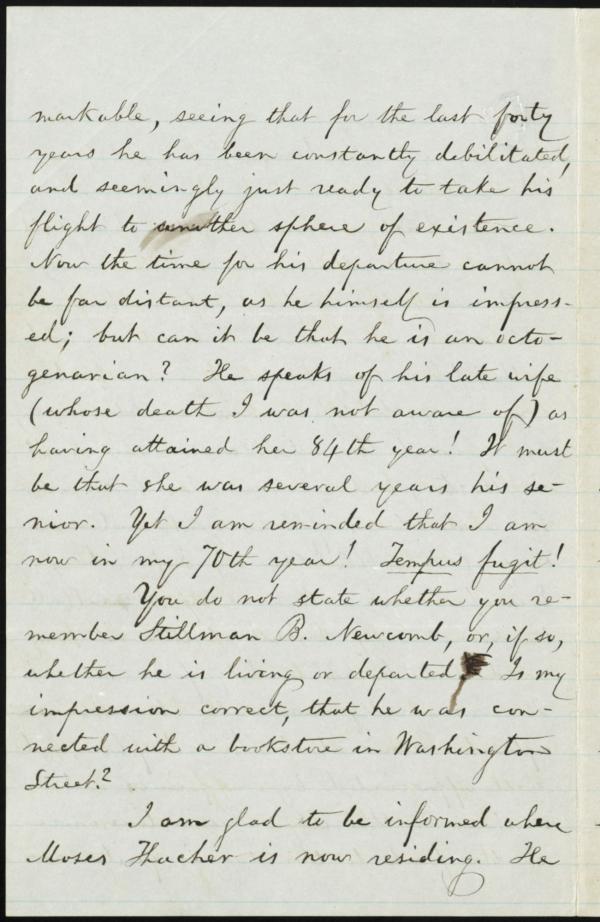 markable, seeing that for the last forty
years he has been constantly debilitated,
and seemingly just ready to take his
flight to another sphere of existence.
Now the time for his departure cannot
be far distant, as he himself is impress-
ed; but can it be that he is an octo-
genarian? He speaks of his late wife
(whose death I was not aware of) as
having attained her 84th year! It must
be that she was several years his se-
nior. Yet I am reminded that I am
now in my 70th year! Tempus fugit!
You do not state whether you re-
member Stillman B. Newcomb, or, if so,
whether he is living or departed. Is my
impression correct, that he was con-
nected with a bookstore in Washington
Street?
I am glad to be informed where
Moses Thacher is now residing. He